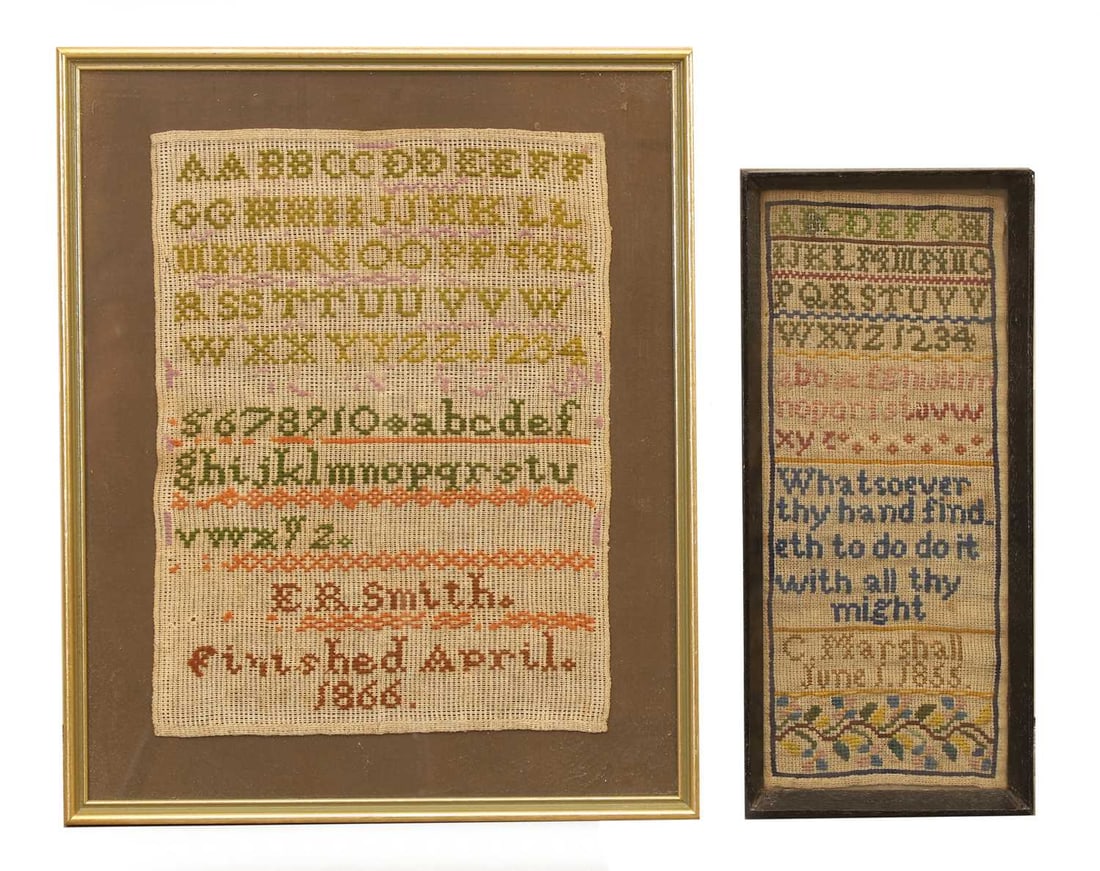 AABBCCDDEEFF
GGHHIIJJKKLL
MMNNOOPPQQR
RSSTTUUVVW
WXXYYZZ.1234
5678910abcdef
ghijklmnopqrstu
vwxyz.
E.R.Smith.
Finished April.
1866.
ABCDEFGH
IJKLMNO
PQRSTUVV
WXYZ1234
abcdefghijklm
nopqrstuvw
xyz
Whatsoever
thy hand find-
eth to do do it
with all thy
might
C. Marshall
June 1.